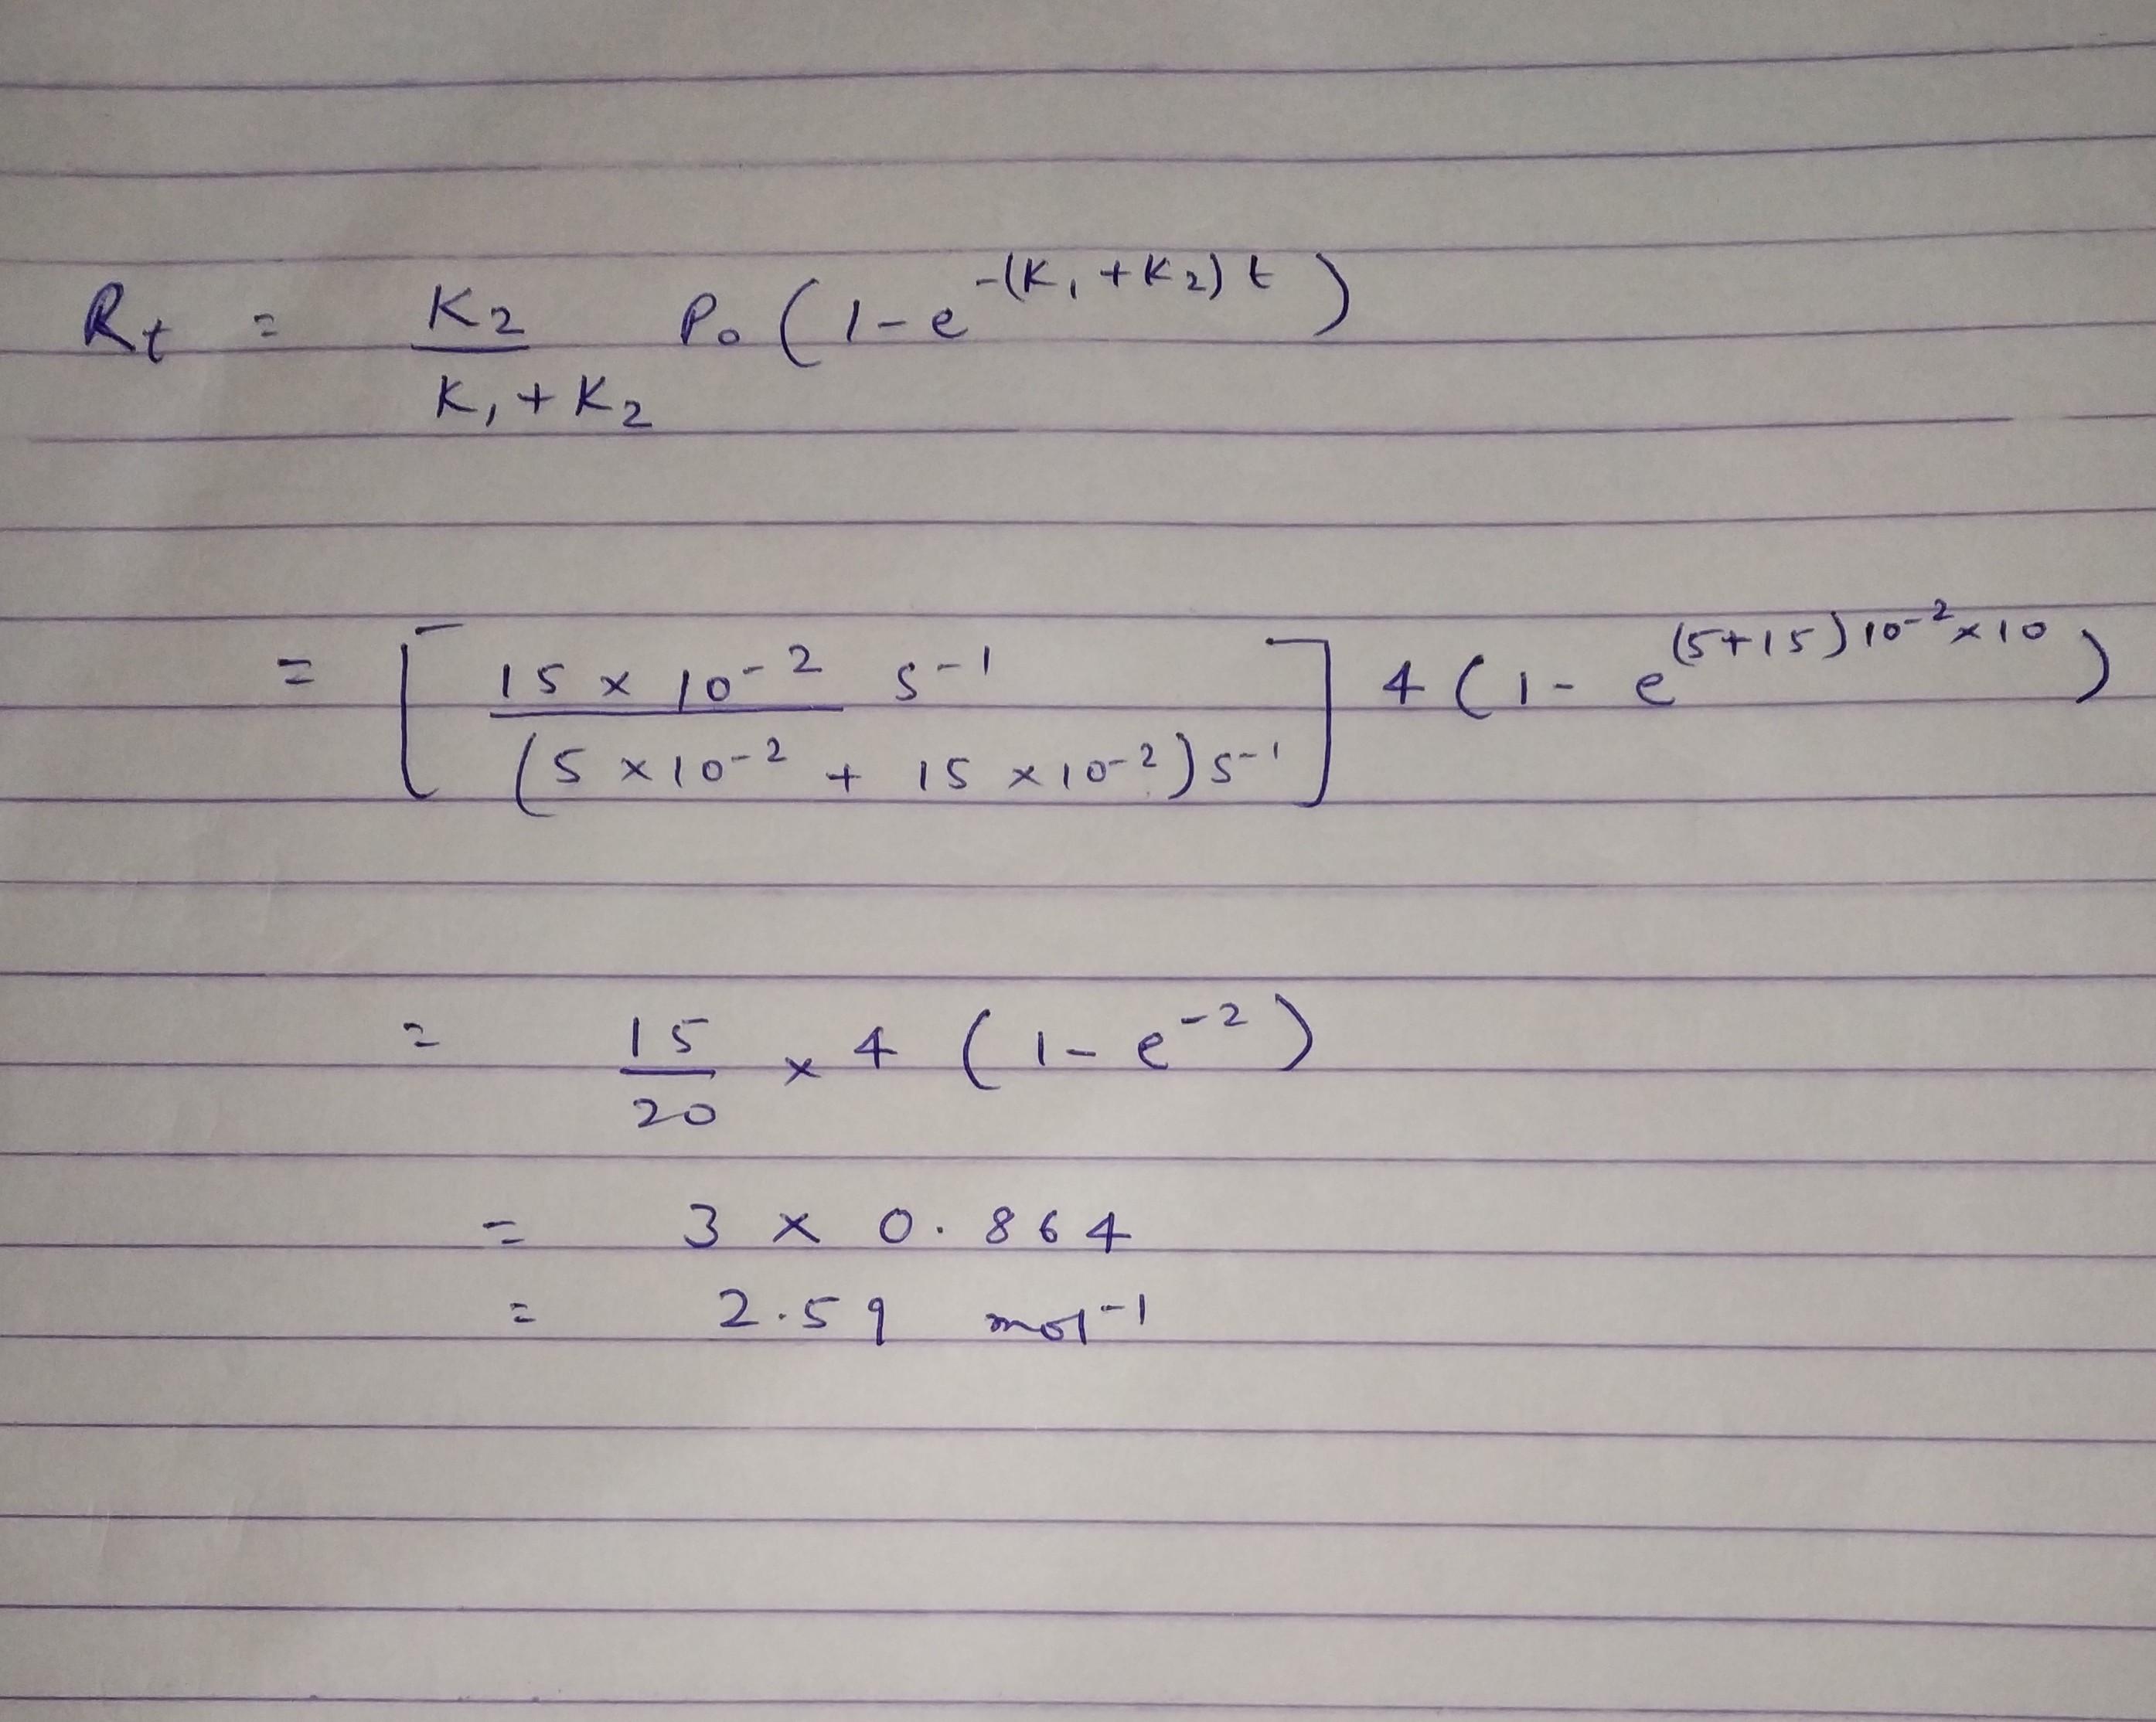 R_t = K_2 / (K_1 + K_2) P_0 (1 - e^{-(K_1 + K_2) t})
= [ 15 × 10^{-2} s^{-1} / (5 × 10^{-2} + 15 × 10^{-2}) s^{-1} ] 4 (1 - e^{(5+15) 10^{-2} × 10})
= 15/20 × 4 (1 - e^{-2})
= 3 × 0.864
= 2.59 mol^{-1}